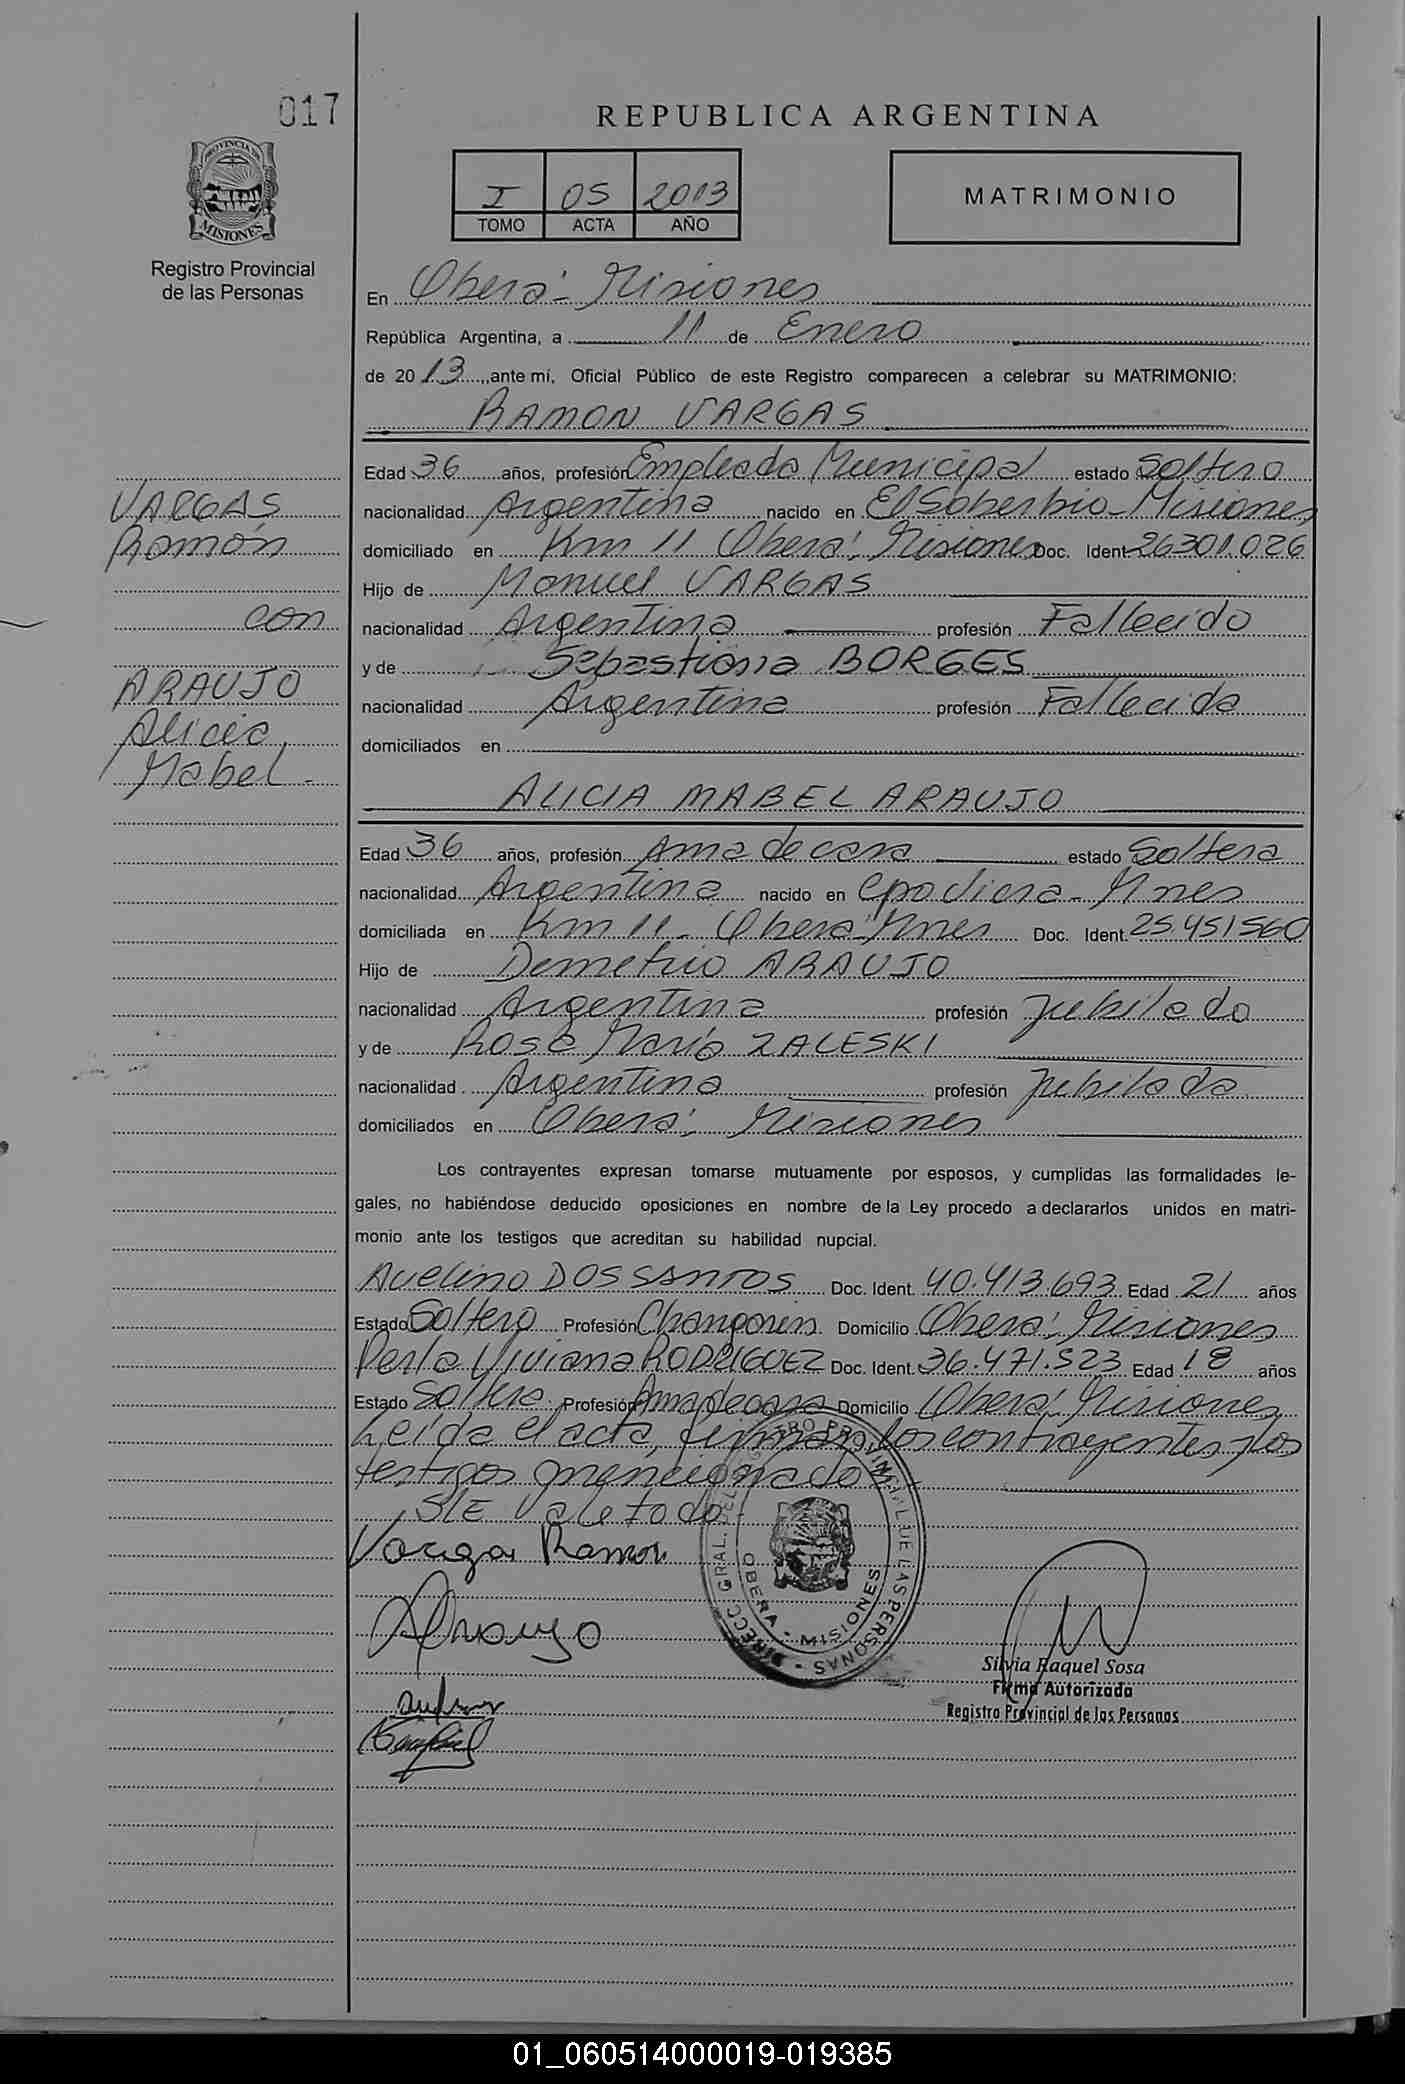 017
REPUBLICA ARGENTINA
I 05 2013
TOMO ACTA AÑO
MATRIMONIO
PROVINCIA DE
MISIONES
Registro Provincial
de las Personas
En Oberá - Misiones
República Argentina, a 11 de Enero
de 2013, ante mí, Oficial Público de este Registro comparecen a celebrar su MATRIMONIO:
RAMON VARGAS
Edad 36 años, profesión Empleado Municipal estado Soltero
nacionalidad Argentina nacido en El Soberbio - Misiones
domiciliado en Km 11 Oberá, Misiones Doc. Ident 26301026
Hijo de Manuel VARGAS
nacionalidad Argentina profesión Fallecido
y de Sebastiana BORGES
nacionalidad Argentina profesión Fallecida
domiciliados en
VARGAS
Ramón
con
ARAUJO
Alicia
Mabel -
ALICIA MABEL ARAUJO
Edad 36 años, profesión Ama de casa estado Soltera
nacionalidad Argentina nacido en Cpo Viera - Mnes
domiciliada en Km 11 - Oberá Mnes Doc. Ident. 25.451560
Hijo de Demetrio ARAUJO
nacionalidad Argentina profesión Jubilado
y de Rosa María ZALESKI
nacionalidad Argentina profesión Jubilada
domiciliados en Oberá, Misiones
Los contrayentes expresan tomarse mutuamente por esposos, y cumplidas las formalidades le-
gales, no habiéndose deducido oposiciones en nombre de la Ley procedo a declararlos unidos en matri-
monio ante los testigos que acreditan su habilidad nupcial.
Avelino DOS SANTOS Doc. Ident. 40.413.693 Edad 21 años
Estado Soltero Profesión Changarín Domicilio Oberá, Misiones
Perla Viviana RODRIGUEZ Doc. Ident. 36.471.523 Edad 18 años
Estado Soltera Profesión Ama de casa Domicilio Oberá, Misiones
Leída el acta, firman los contrayentes y los
testigos mencionado
S/E Vale todo -
Vargas Ramon
Araujo
DIRECC. GRAL. DEL REGISTRO PROVINCIAL DE LAS PERSONAS -
OBERA - MISIONES
Silvia Raquel Sosa
Firma Autorizada
Registro Provincial de las Personas
01_060514000019-019385